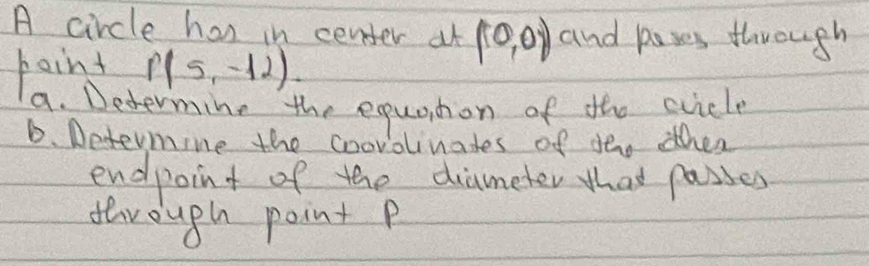 A circle has in center at (0,0) and passes through
point P(5,-12).
a. Determine the equation of the circle
b. Determine the coordinates of the other
endpoint of the diameter that passes
through point P